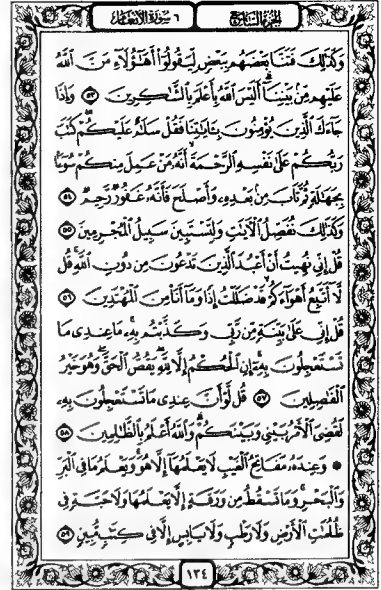 الجزء السابع
٦ سورة الأنعام
وَكَذَٰلِكَ فَتَنَّا بَعْضَهُم بِبَعْضٍ لِّيَقُولُوٓا۟ أَهَٰٓؤُلَآءِ مَنَّ ٱللَّهُ
عَلَيْهِم مِّنۢ بَيْنِنَآ أَلَيْسَ ٱللَّهُ بِأَعْلَمَ بِٱلشَّٰكِرِينَ ٥٣ وَإِذَا
جَآءَكَ ٱلَّذِينَ يُؤْمِنُونَ بِـَٔايَٰتِنَا فَقُلْ سَلَٰمٌ عَلَيْكُمْ كَتَبَ
رَبُّكُمْ عَلَىٰ نَفْسِهِ ٱلرَّحْمَةَ أَنَّهُۥ مَنْ عَمِلَ مِنكُمْ سُوٓءًۢا
بِجَهَٰلَةٍ ثُمَّ تَابَ مِنۢ بَعْدِهِۦ وَأَصْلَحَ فَأَنَّهُۥ غَفُورٌ رَّحِيمٌ ٥٤
وَكَذَٰلِكَ نُفَصِّلُ ٱلْـَٔايَٰتِ وَلِتَسْتَبِينَ سَبِيلُ ٱلْمُجْرِمِينَ ٥٥
قُلْ إِنِّى نُهِيتُ أَنْ أَعْبُدَ ٱلَّذِينَ تَدْعُونَ مِن دُونِ ٱللَّهِ قُل
لَّآ أَتَّبِعُ أَهْوَآءَكُمْ قَدْ ضَلَلْتُ إِذًا وَمَآ أَنَا۠ مِنَ ٱلْمُهْتَدِينَ ٥٦
قُلْ إِنِّى عَلَىٰ بَيِّنَةٍ مِّن رَّبِّى وَكَذَّبْتُم بِهِۦ مَا عِندِى مَا
تَسْتَعْجِلُونَ بِهِۦٓ إِنِ ٱلْحُكْمُ إِلَّا لِلَّهِ يَقُصُّ ٱلْحَقَّ وَهُوَ خَيْرُ
ٱلْفَٰصِلِينَ ٥٧ قُل لَّوْ أَنَّ عِندِى مَا تَسْتَعْجِلُونَ بِهِۦ
لَقُضِىَ ٱلْأَمْرُ بَيْنِى وَبَيْنَكُمْ وَٱللَّهُ أَعْلَمُ بِٱلظَّٰلِمِينَ ٥٨
۞ وَعِندَهُۥ مَفَاتِحُ ٱلْغَيْبِ لَا يَعْلَمُهَآ إِلَّا هُوَ وَيَعْلَمُ مَا فِى ٱلْبَرِّ
وَٱلْبَحْرِ وَمَا تَسْقُطُ مِن وَرَقَةٍ إِلَّا يَعْلَمُهَا وَلَا حَبَّةٍ فِى
ظُلُمَٰتِ ٱلْأَرْضِ وَلَا رَطْبٍ وَلَا يَابِسٍ إِلَّا فِى كِتَٰبٍ مُّبِينٍ ٥٩
١٣٤